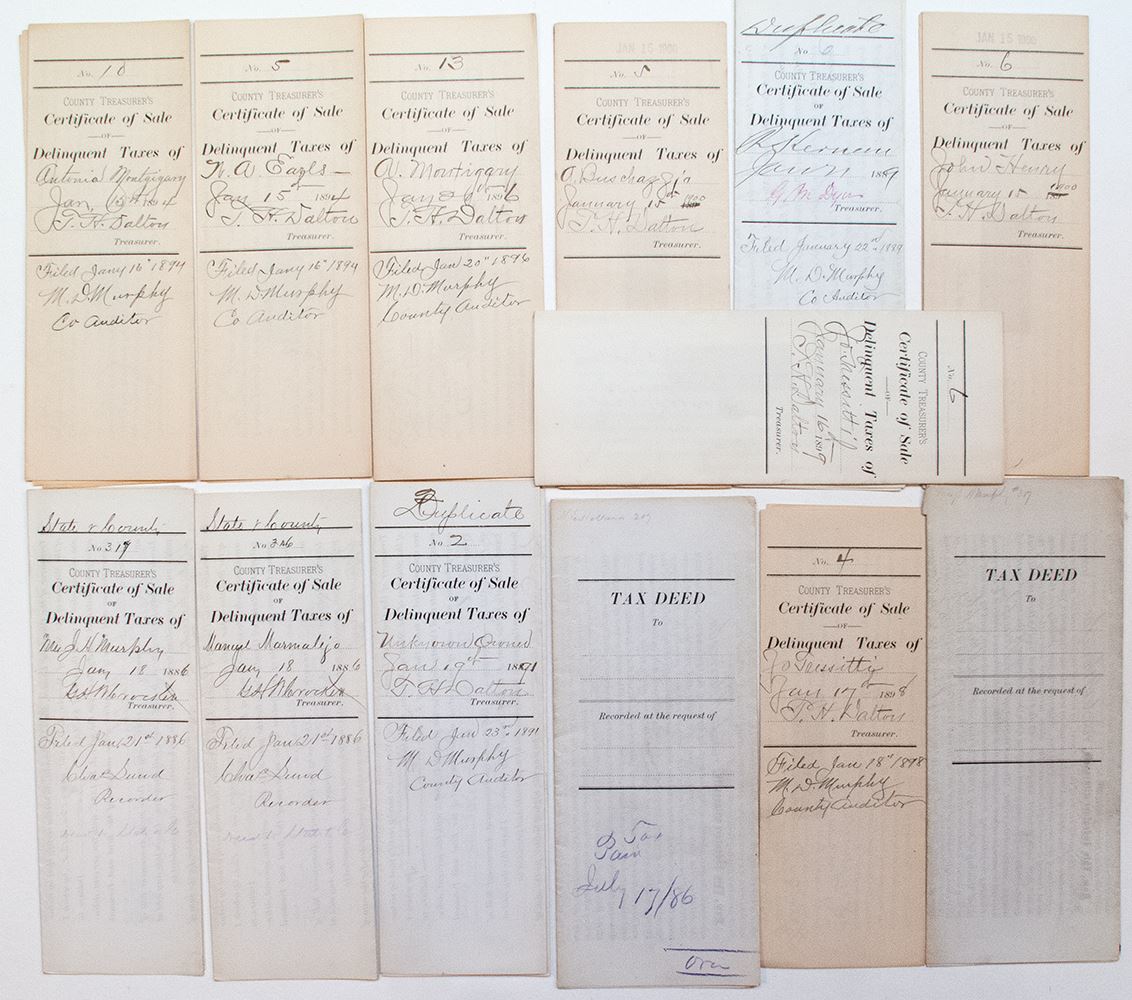 No. 10
COUNTY TREASURER'S
Certificate of Sale
—OF—
Delinquent Taxes of
Antonia Montgigary
Jan 15th 1894
T. H. Dalton
Treasurer.
Filed Jany 16th 1894
M. D. Murphy
Co Auditor
No. 5
COUNTY TREASURER'S
Certificate of Sale
—OF—
Delinquent Taxes of
A. Eagls
Jan 15th 1894
T. H. Dalton
Treasurer.
Filed Jany 16th 1894
M. D. Murphy
Co Auditor
No. 13
COUNTY TREASURER'S
Certificate of Sale
—OF—
Delinquent Taxes of
A. Montigary
Jan 20th 1896
T. H. Dalton
Treasurer.
Filed Jan 20th 1896
M. D. Murphy
County Auditor
JAN 15 1900
No. 5
COUNTY TREASURER'S
Certificate of Sale
—OF—
Delinquent Taxes of
A. Buschaggia
January 15th 1900
T. H. Dalton
Treasurer.
Duplicate
No. 6
COUNTY TREASURER'S
Certificate of Sale
OF
Delinquent Taxes of
Kernan
1889
G. M. Dyer
Treasurer.
Filed January 22nd 1889
M. D. Murphy
Co Auditor
JAN 15 1900
No. 6
COUNTY TREASURER'S
Certificate of Sale
—OF—
Delinquent Taxes of
John Henry
January 15 1900
T. H. Dalton
Treasurer.
No. 6
COUNTY TREASURER'S
Certificate of Sale
—OF—
Delinquent Taxes of
Jo. Teissitti
January 16th 1899
T. H. Dalton
Treasurer.
State & County
No 317
COUNTY TREASURER'S
Certificate of Sale
OF
Delinquent Taxes of
Mrs J. H. Murphy
Jany 18 1886
Geo H Crocker
Treasurer.
Filed Jan 21st 1886
Chas Lund
Recorder
State & County
No 346
COUNTY TREASURER'S
Certificate of Sale
OF
Delinquent Taxes of
Manuel Marmalejo
Jany 18 1886
Geo H Crocker
Treasurer.
Filed Jan 21st 1886
Chas Lund
Recorder
Duplicate
No. 2
COUNTY TREASURER'S
Certificate of Sale
OF
Delinquent Taxes of
Unknown Owner
Jan 19th 1891
T. H. Dalton
Treasurer.
Filed Jan 23rd 1891
M D Murphy
County Auditor
TAX DEED
To
Recorded at the request of
July 17/86
Over
No. 4
COUNTY TREASURER'S
Certificate of Sale
—OF—
Delinquent Taxes of
Jo Teissitti
Jan 17th 1898
T. H. Dalton
Treasurer.
Filed Jan 18th 1898
M. D. Murphy
County Auditor
TAX DEED
To
Recorded at the request of